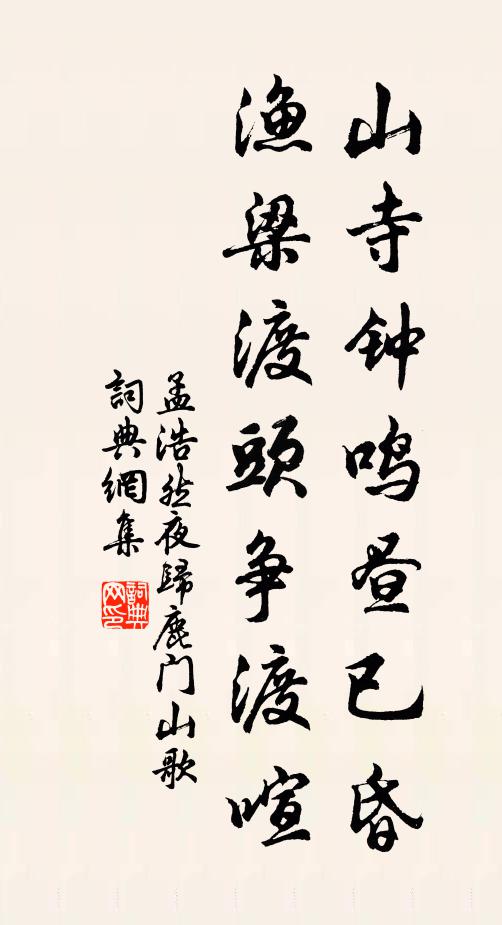 山寺钟鸣昼已昏
渔梁渡頭争渡喧
孟浩然夜歸鹿门山歌
詞典網集
詞典网印